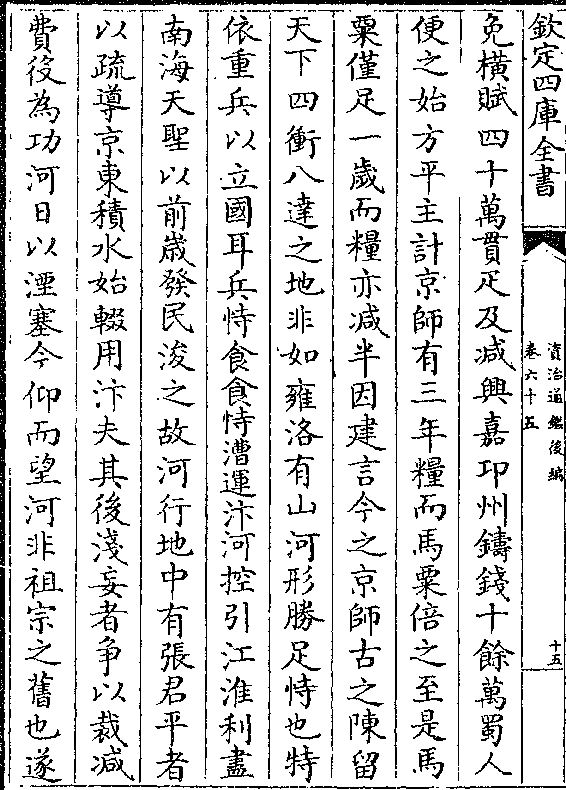 欽定四庫全書
資治通鑑後編
卷六十五
十五
免橫賦四十萬貫疋及减興嘉卭州鑄錢十餘萬蜀人
便之始方平主計京師有三年糧而馬粟倍之至是馬
粟僅足一歲而糧亦减半因建言今之京師古之陳留
天下四衝八達之地非如雍洛有山河形勝足恃也特
依重兵以立國耳兵恃食食恃漕運汴河控引江淮利盡
南海天聖以前歲發民浚之故河行地中有張君平者
以疏導京東積水始輟用汴夫其後淺妄者争以裁减
費役為功河日以湮塞今仰而望河非祖宗之舊也遂